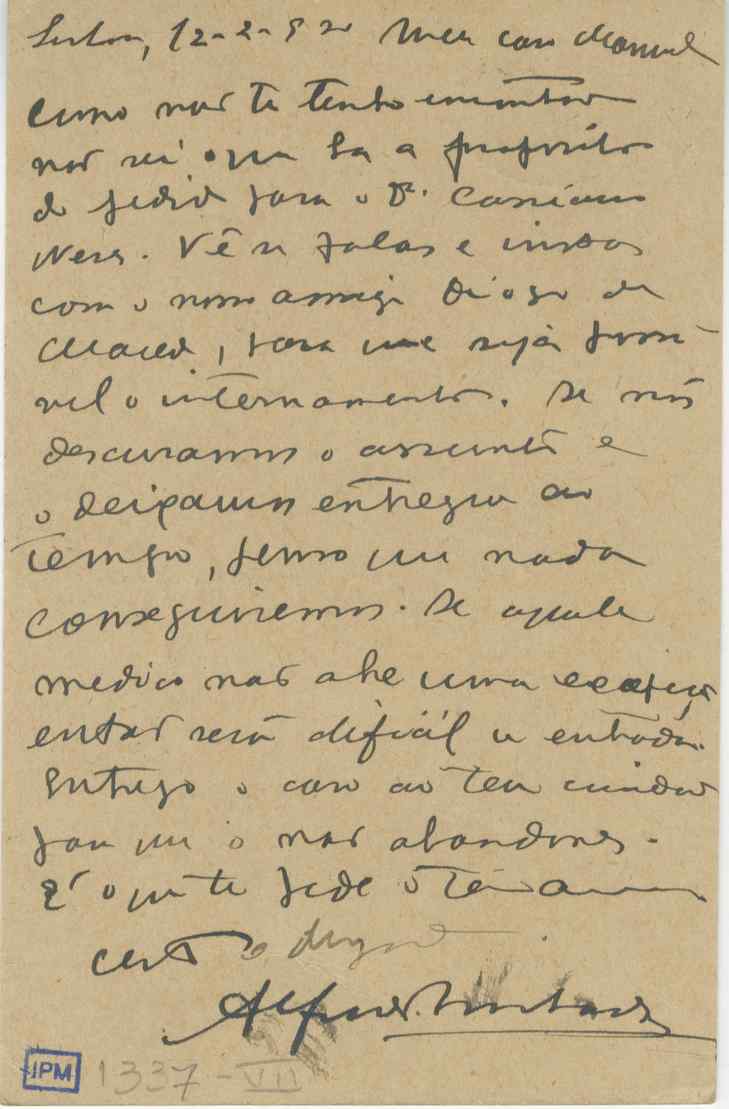 Lisboa, 12-2-920 Meu caro Manuel
como não te tenho encontrado
não sei o que ha a proposito
do pedido para o Dr. Cassiano
Neves. Vê se falas e instas
com o nosso amigo Diogo de
Macedo, para que seja possi-
vel o internamento. Se nós
descuramos o assunto e
o deixamos entregue ao
tempo, penso que nada
conseguiremos. Se aquele
medico não abre uma excepção
então será dificil a entrada.
Entrego o caso ao teu cuidado
para que o não abandones.
É o que te pede o teu amigo
certo e
Alfredo
IPM 1337-VII